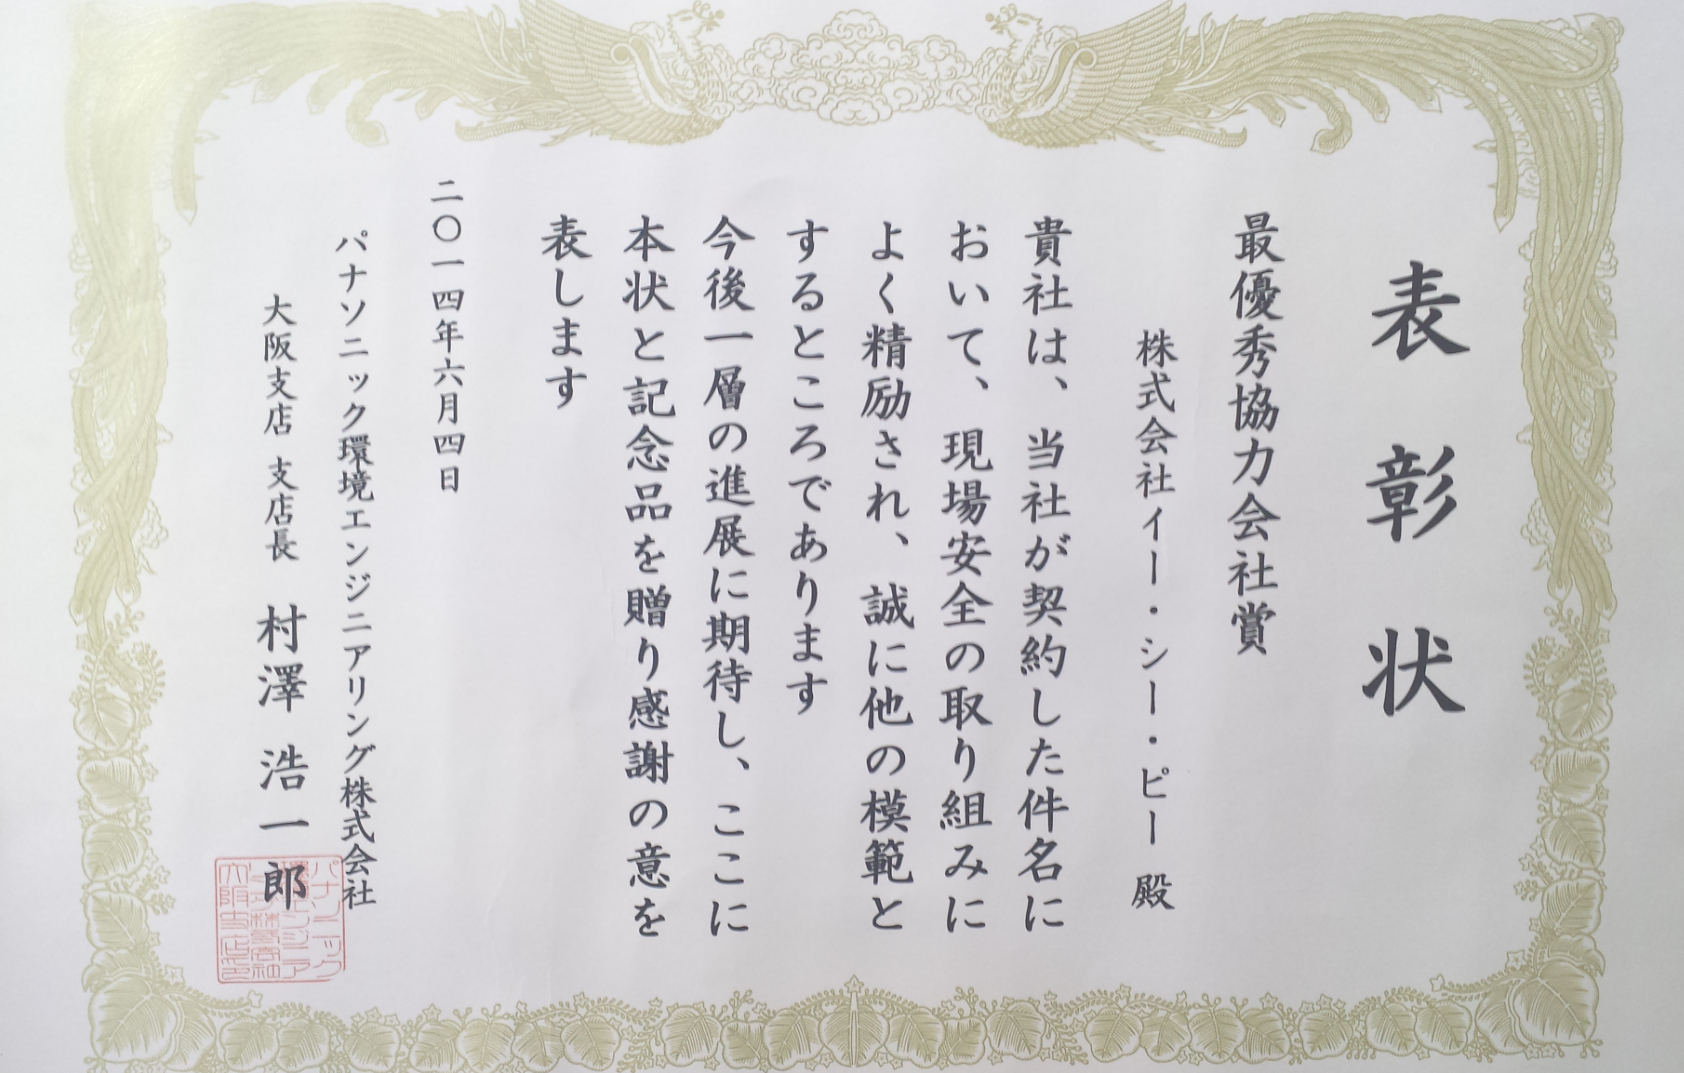 表彰状
最優秀協力会社賞
株式会社イー・シー・ピー 殿
貴社は、当社が契約した件名に
おいて、現場安全の取り組みに
よく精励され、誠に他の模範と
するところであります
今後一層の進展に期待し、ここに
本状と記念品を贈り感謝の意を
表します
二〇一四年六月四日
パナソニック環境エンジニアリング株式会社
大阪支店 支店長 村澤浩一郎